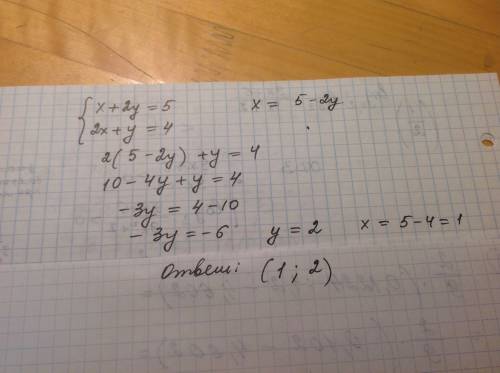 { x + 2y = 5      x = 5 - 2y
{ 2x + y = 4
2(5 - 2y) + y = 4
10 - 4y + y = 4
-3y = 4 - 10
-3y = -6    y = 2    x = 5 - 4 = 1
Ответ: (1; 2)